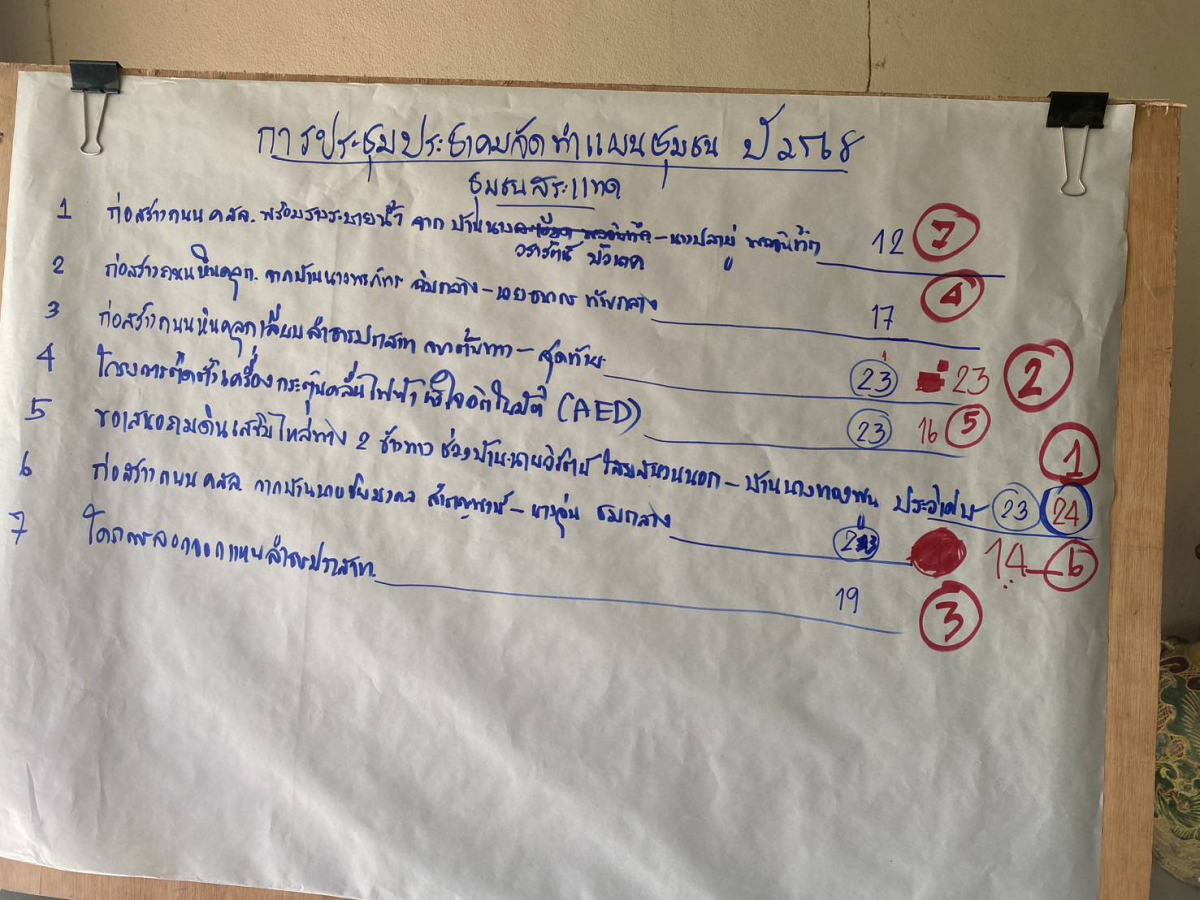 การประชุมประชาคมจัดทำแผนชุมชน ปี ๒๕๖๘
ชุมชนสระแทด
1 ก่อสร้างถนน คสล. พร้อมรางระบายน้ำ จาก บ้านนาง - นาง 12 7
วรารัตน์ บัวนาค
2 ก่อสร้างถนนหินคลุก. จากบ้านนาง กลาง - นาย กลาง 17 4
3 ก่อสร้างถนนหินคลุกเลียบลำธารปราสาท - สุดท้าย 23 23 2
4 โครงการติดตั้งเครื่องกระตุ้นคลื่นไฟฟ้าหัวใจอัตโนมัติ (AED) 23 16 5
5 ขอเสนอถมดินเสริมไหล่ทาง 2 ข้างทาง ช่วงบ้านนายวิรัตน์ - บ้านนางทองพูน 23 24 1
6 ก่อสร้างถนน คสล. จากบ้านนายชัยมงคล - นางอุ่น ชมกลาง 23 14 - 6
7 โครงการลอกจอกแหนลำธารปราสาท 19 3